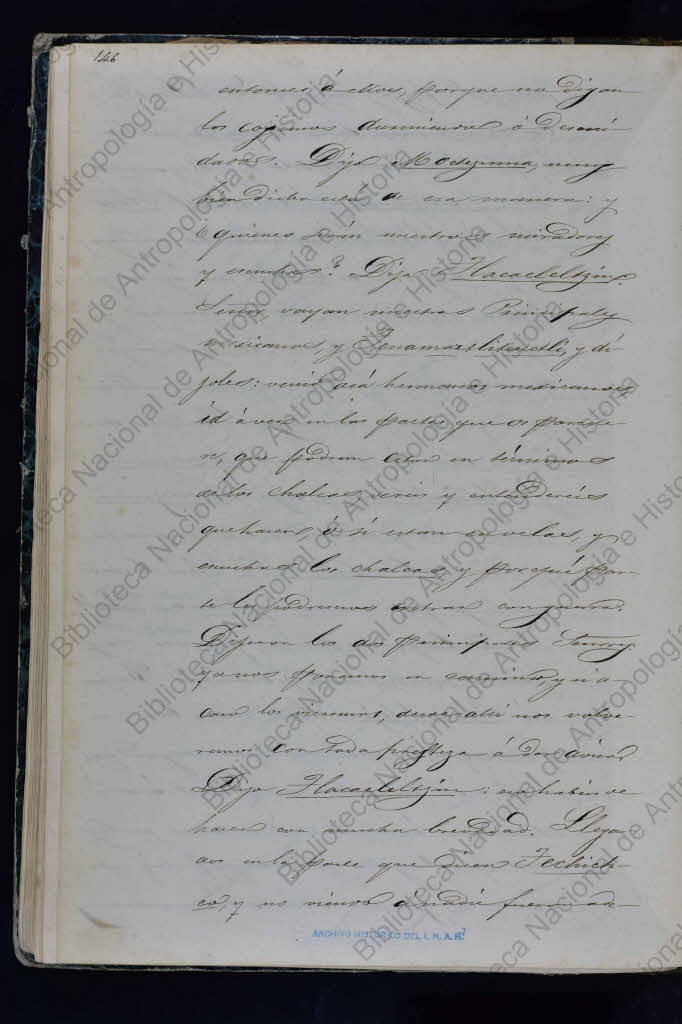 146
entonces á ellos, porque no digan
los cojimos durmiendo ó descui-
dados. Dijo Moctezuma, muy
bien dicho está de esa manera: y
¿quienes serán nuestros miradores
y escuchas? Dijo Tlacaeleltzin:
Señor, vayan nuestros Principales
mexicanos, y Tenamaztlitecuctli, y dí-
joles: venid acá hermanos mexicanos,
id á ver en las partes que os parecie-
re, que podran estar en términos
de los chalcas, vereis y entendereis
que hacen, ó si estan en velas, y
escuchas los chalcas y por qué par-
te les podremos entrar con guerra.
Dijeron los dos principales Señor,
ya nos ponemos en camino, y si a-
caso los vieremos, desde ahi nos volve-
remos con toda presteza á dar aviso.
Dijo Tlacaeleltzin: no habeis de
hacer con mucha brevedad. Llega
dos en la parte que dicen Techich-
co, y no viendo á nadie fueron ade-
ARCHIVO HISTORICO DEL I. N. A. H.
Biblioteca Nacional de Antropología e Historia